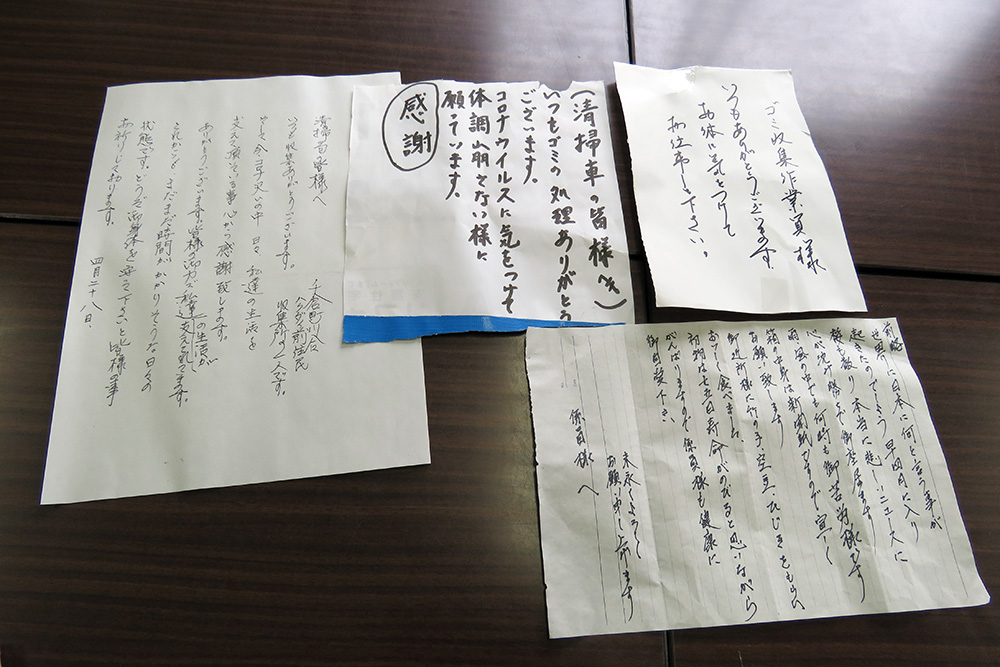 清掃者の皆様へ
いつも収集ありがとうございます。
千倉町川合
ハラダ前住民
収集所の一人です。
今コロナ災いの中 日々 私達の生活を
支えて頂いている事 心から感謝致します。
ありがとうございます。皆様の御力で私達の生活が
支えられてます。
これからも まだまだ時間がかかりそうな日々の
状態です。どうぞ御身体を守って下さいと 皆様の事
お祈りしております。
四月二十八日
(清掃車の皆様へ)
いつもゴミの処理ありがとう
ございます。
コロナウイルスに気をつけて
体調崩さない様に
願っています。
感謝
ゴミ収集作業員様
いつもありがとうございます。
お体に気をつけて
お仕事して下さい。
前略
世界に日本に何と言う事が
起きたのでしょう 早四月に入り
桜も散り 本当に悲しいニュースに
心が沈み勝ちで御座居ます
雨風の中でも何時も御苦労様です
箱の中身は新聞紙ですので宜しく
お願い致します
御近所様に竹の子、空豆、ひじきをもらい
ゆでて食べました、
初物は七十五日寿命がのびると思いながら
がんばりますので係員様も健康に
御自愛下さい
末永くよろしく
お願い申し上げます
係員様へ